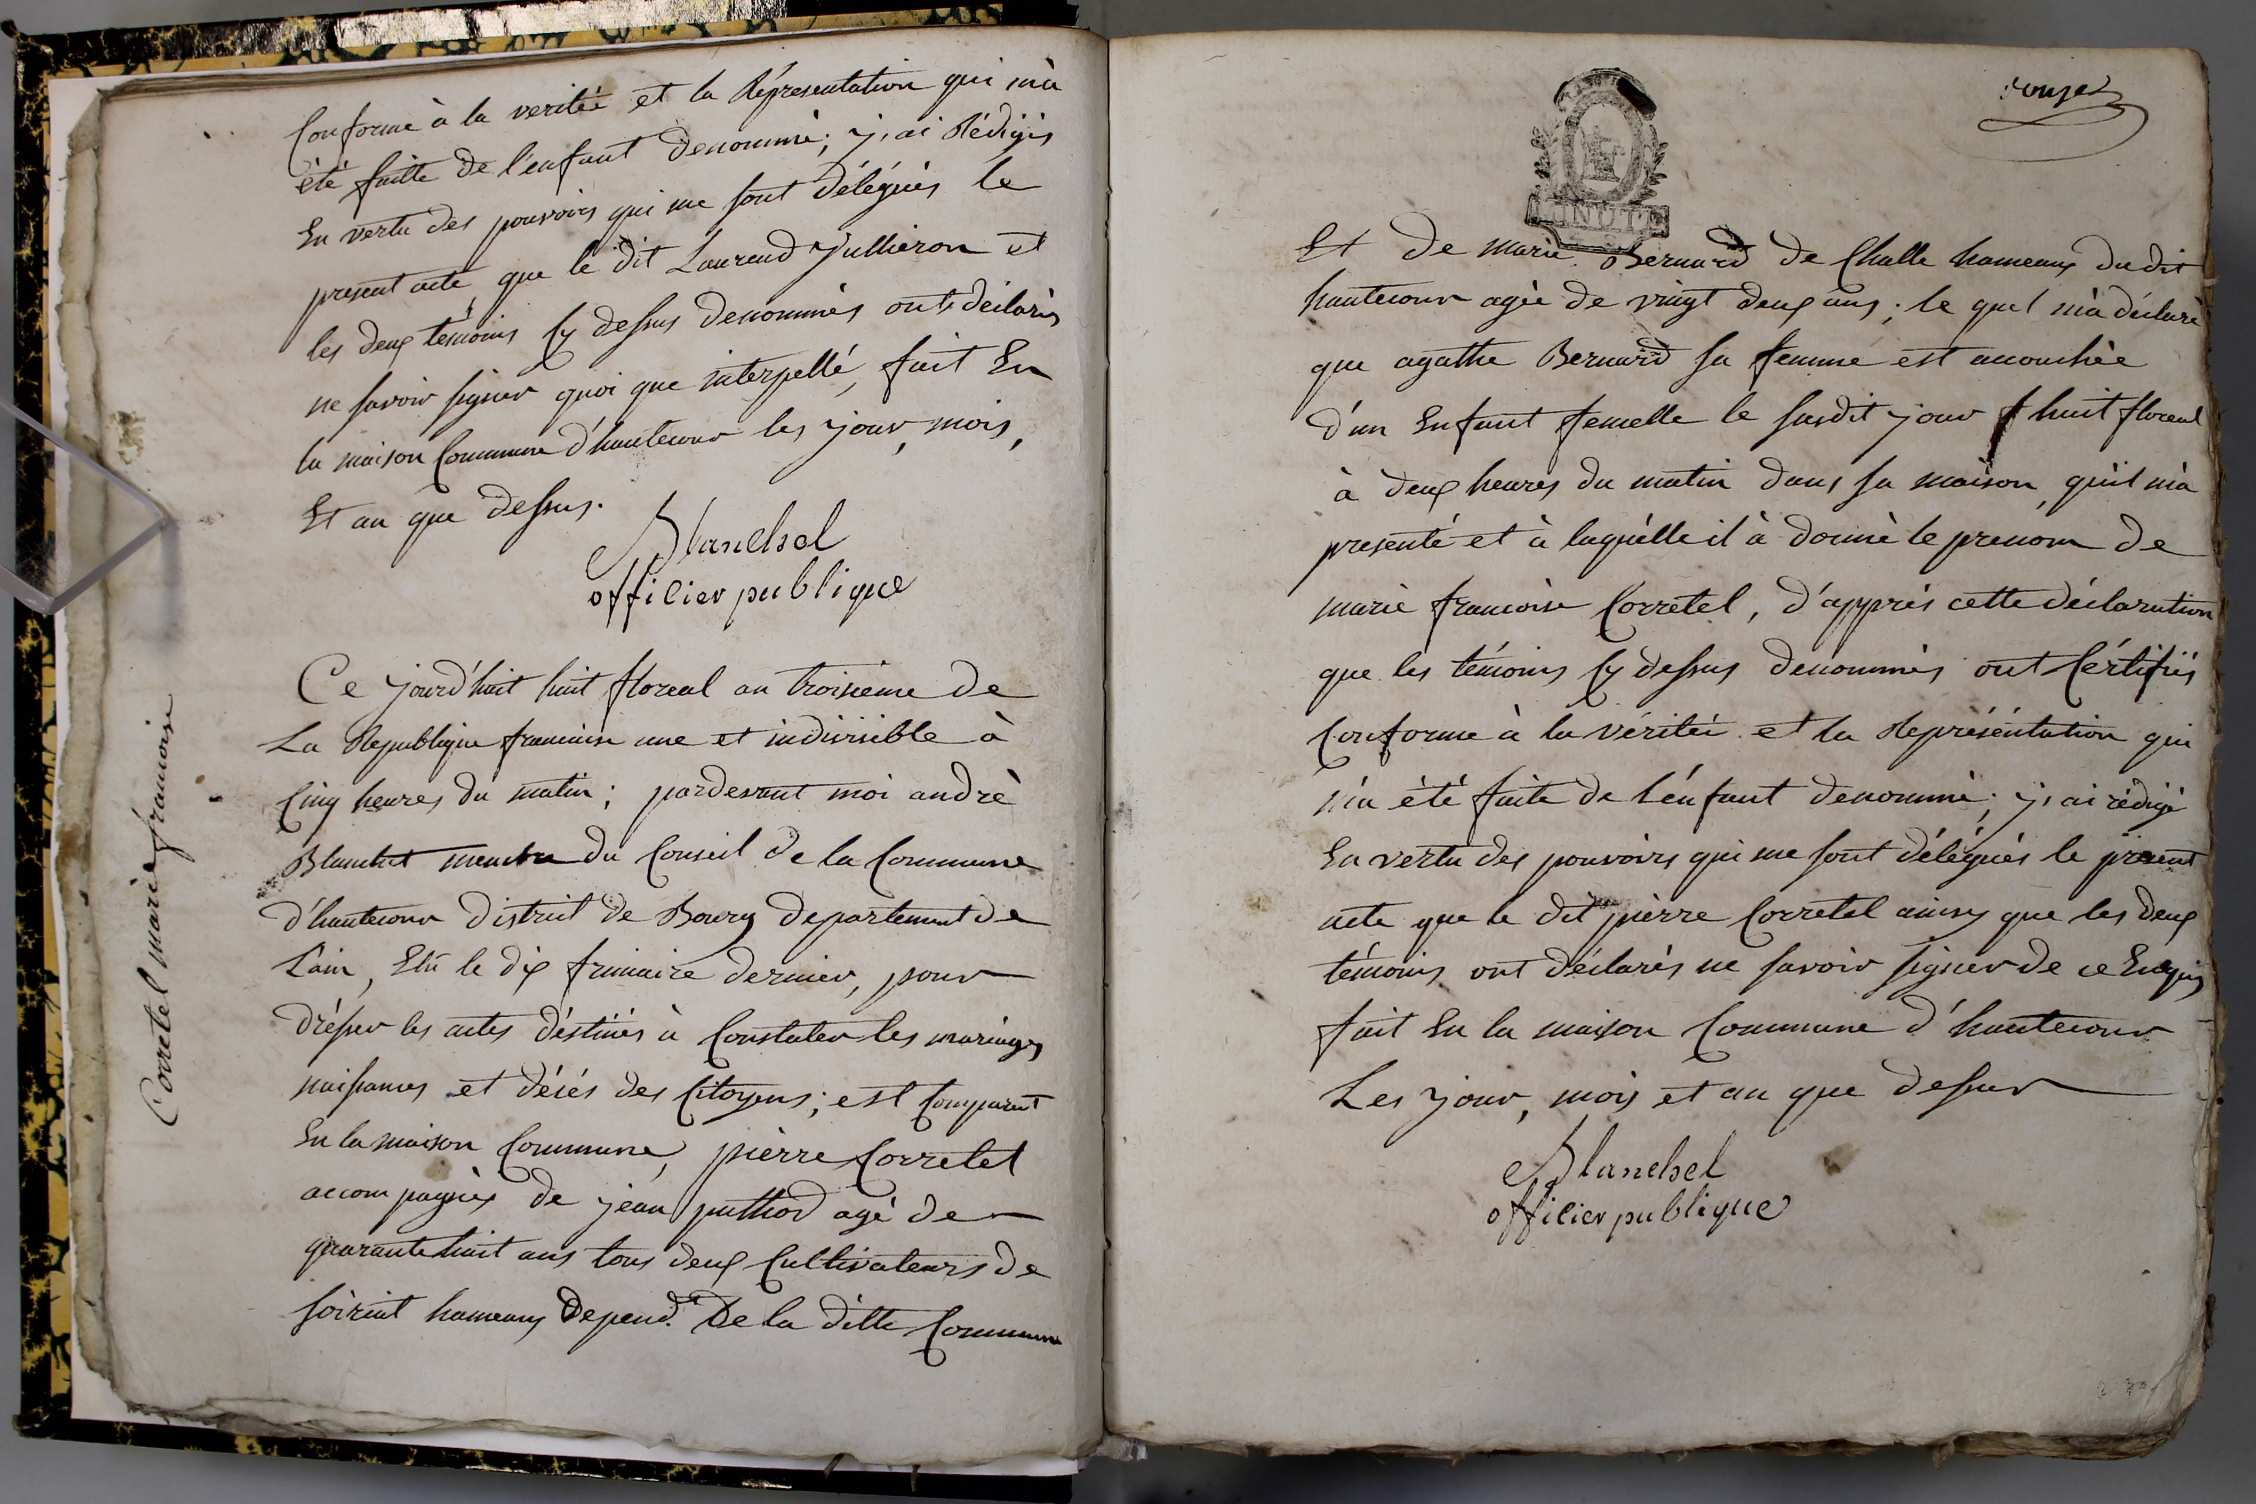 Conforme à la verité et la Répresentation qui m'à
été faitte de l'enfant denommé; j,ai Rédigés
En vertu des pouvoirs qui me sont délégués le
present acte que le dit Laurend Jullieron et
les deux témoins Cy dessus denommés onts déclarés
ne savoir signer quoi que interpellé, fait En
la maison Commune d'hautecour les jour, mois,
Et an que dessus.
Blanchet
officier publique
Corretel marie francoise
Ce jourd'huit huit floreal an troisieme de
La Republique francoise une et indivisible à
Cinq heures du matin; pardevant moi andrè
Blanchet membre du Conseil de la Commune
d'hautecour district de Bourg departement de
L'ain, Elû le dix frimaire dernier, pour
drésser les actes déstinés à Constater les mariages
naissances et décés des Citoyens; est Comparut
En la maison Commune, pièrre Corretel
accompagnés de jéan puthod agé de
quarante huit ans tous deux Cultivateurs de
soiriat hameaux depend.t De la ditte Commune
onze
MINUTE
Et de marie Bernard de Challe hameaux du dit
hautecour agée de vingt deux ans; le quel m'à déclaré
que agathe Bernard sa femme est accouchée
d'un Enfant femelle le susdit jour huit floreal
à deux heures du matin dans sa maison, qu'il m'à
presenté et à laquèlle il à donné le prenom de
marie francoise Corretel, d'apprés cette déclaration
que les témoins Cy dessus denommés ont Cértifiés
Conforme à la vérité et la Représéntation qui
m'a été faite de l'énfant denommé; j,ai rédigé
En vertu des pouvoirs qui me sont délégués le présent
acte que le dit pièrre Corretel ainsy que les deux
témoins ont déclarés ne savoir signer de ce Enquis
fait En la maison Commune d'hautecour
Les jour, mois et an que dessus
Blanchet
officier publique